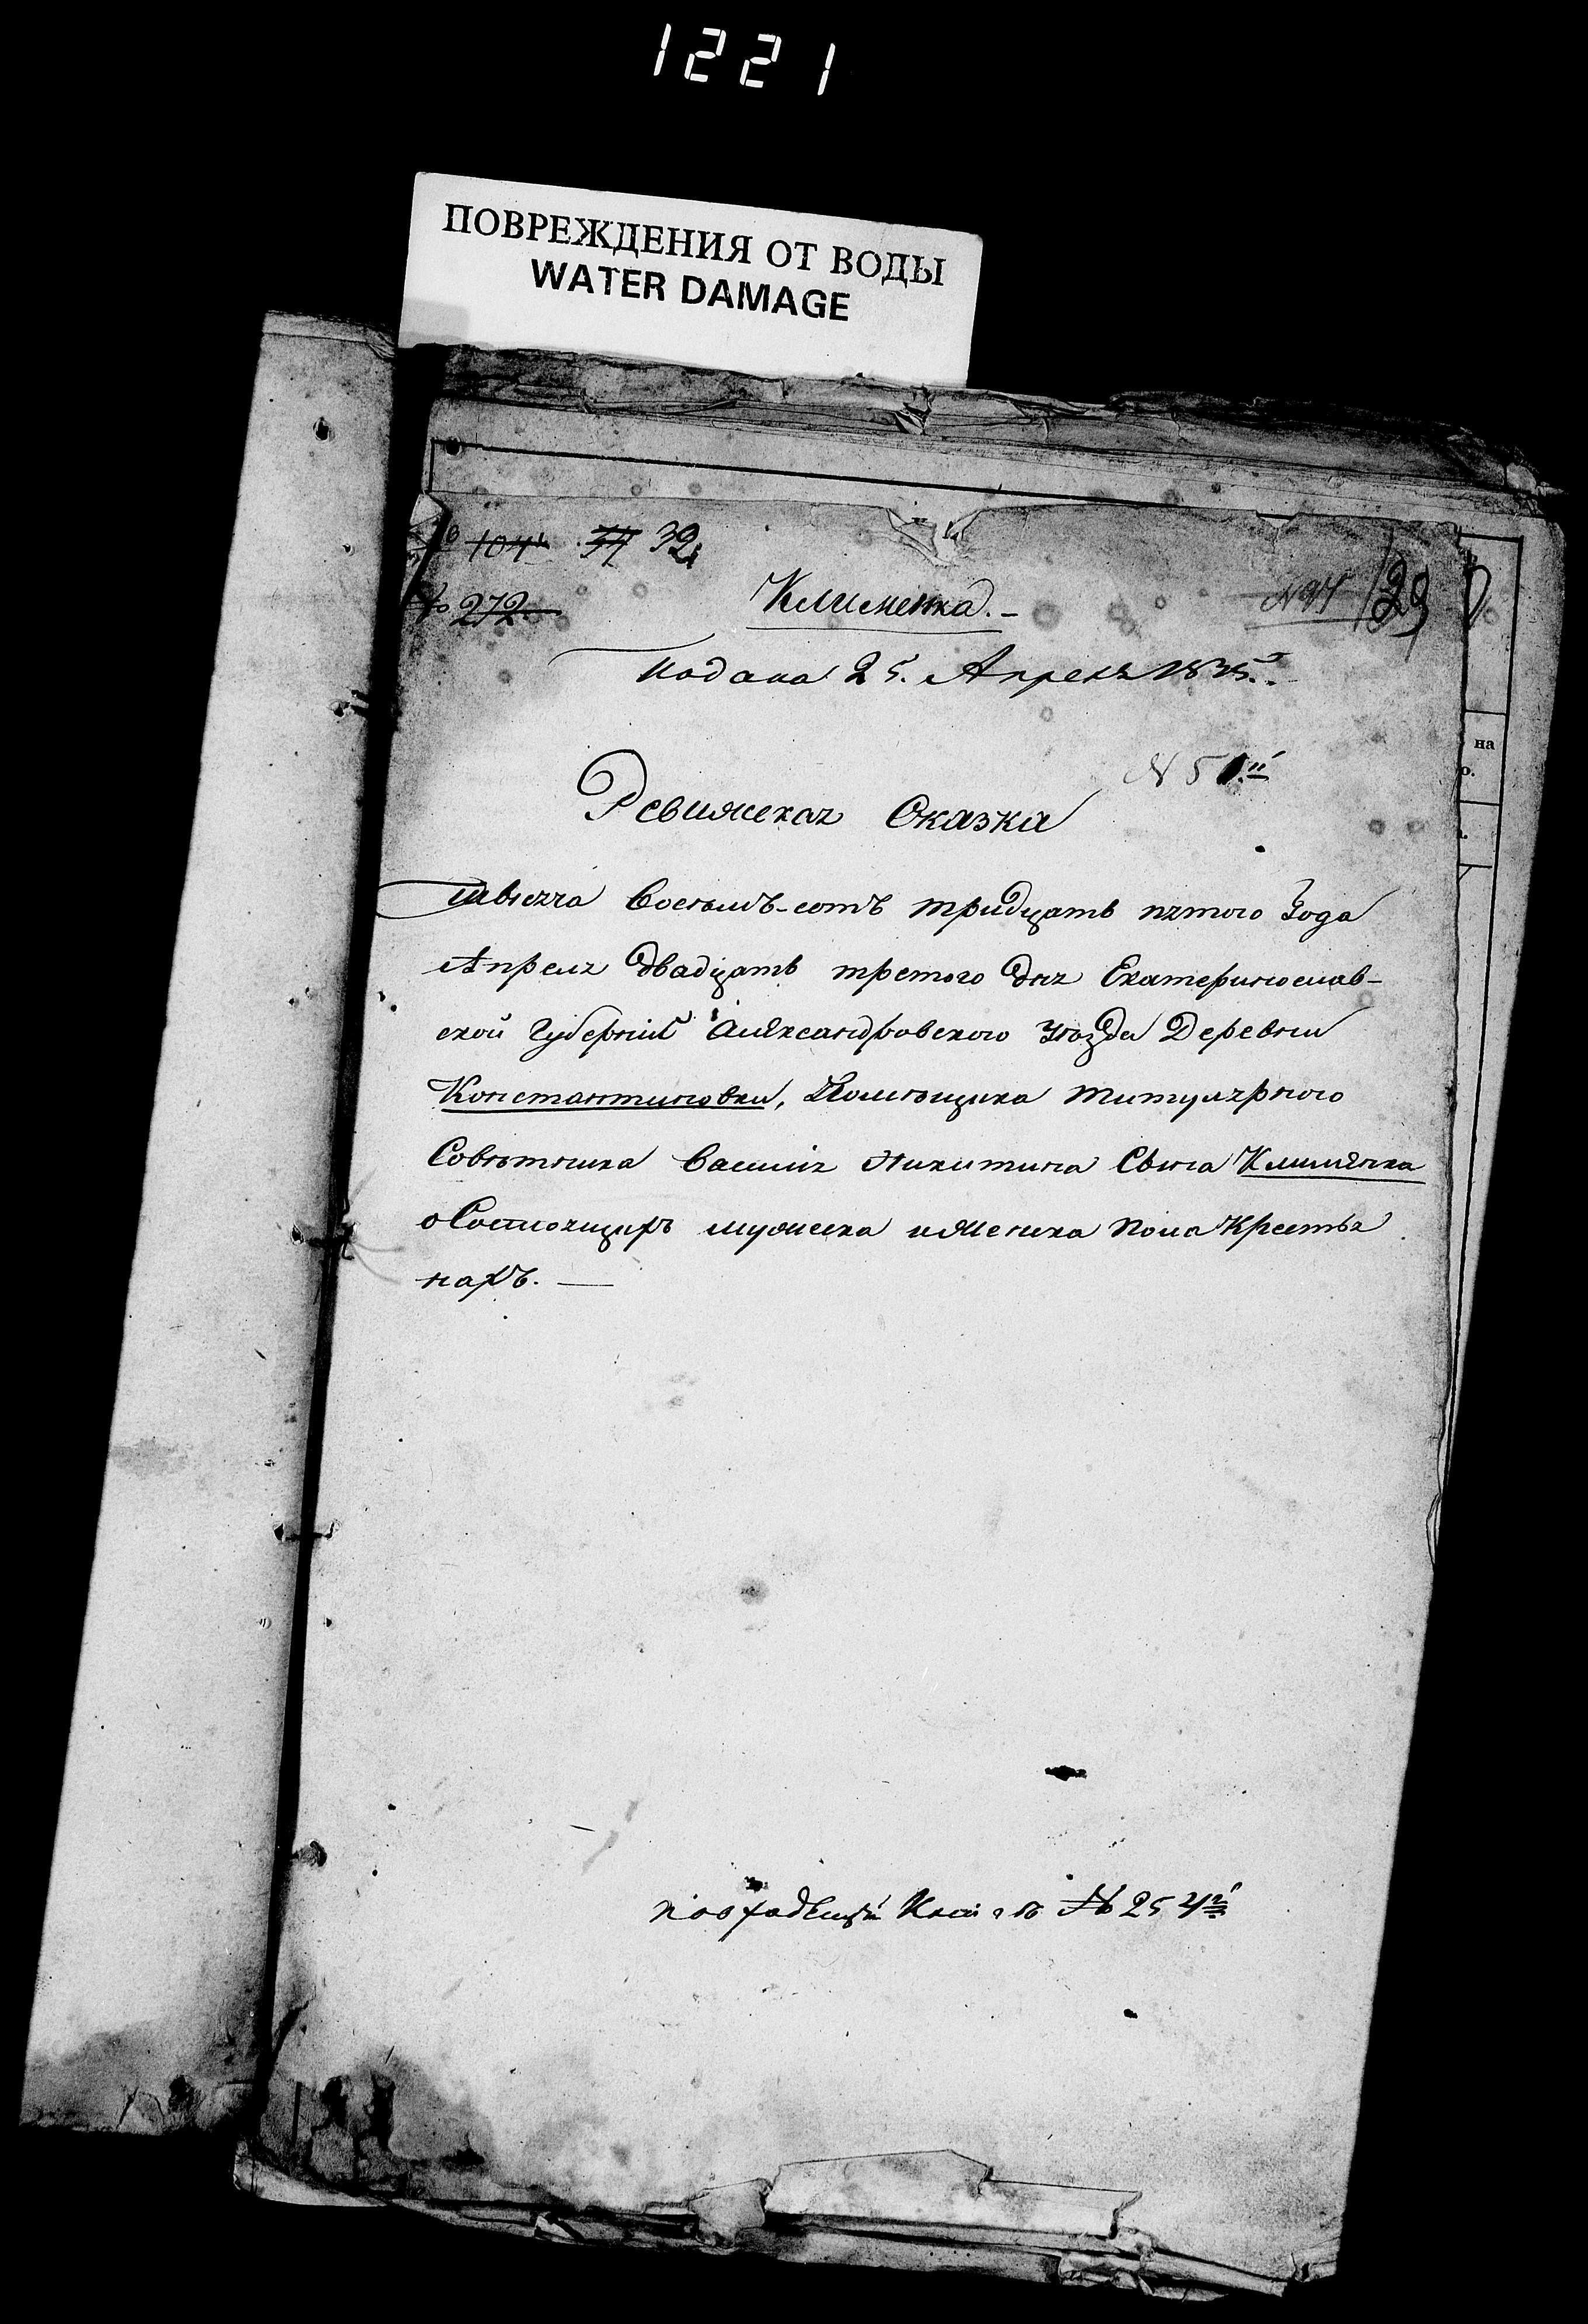 1221
ПОВРЕЖДЕНИЯ ОТ ВОДЫ
WATER DAMAGE
104 37 32
№ 272
Клименка.
29
подана 25. Апреля 1835.
N 51.
Ревижская Сказка
тысяча восемь-сотъ тридцать пятого года
Апреля двадцать третого дня Екатеринослав-
ской Губерніи Александровского уѣзда Деревни
Константиновки, Помѣщика титулярного
Совѣтника Василія Никитина Сына Клименка
о Состоящихъ мужеска и женска пола Крестья
нахъ.
на
о.
по входящей Книгѣ № 254